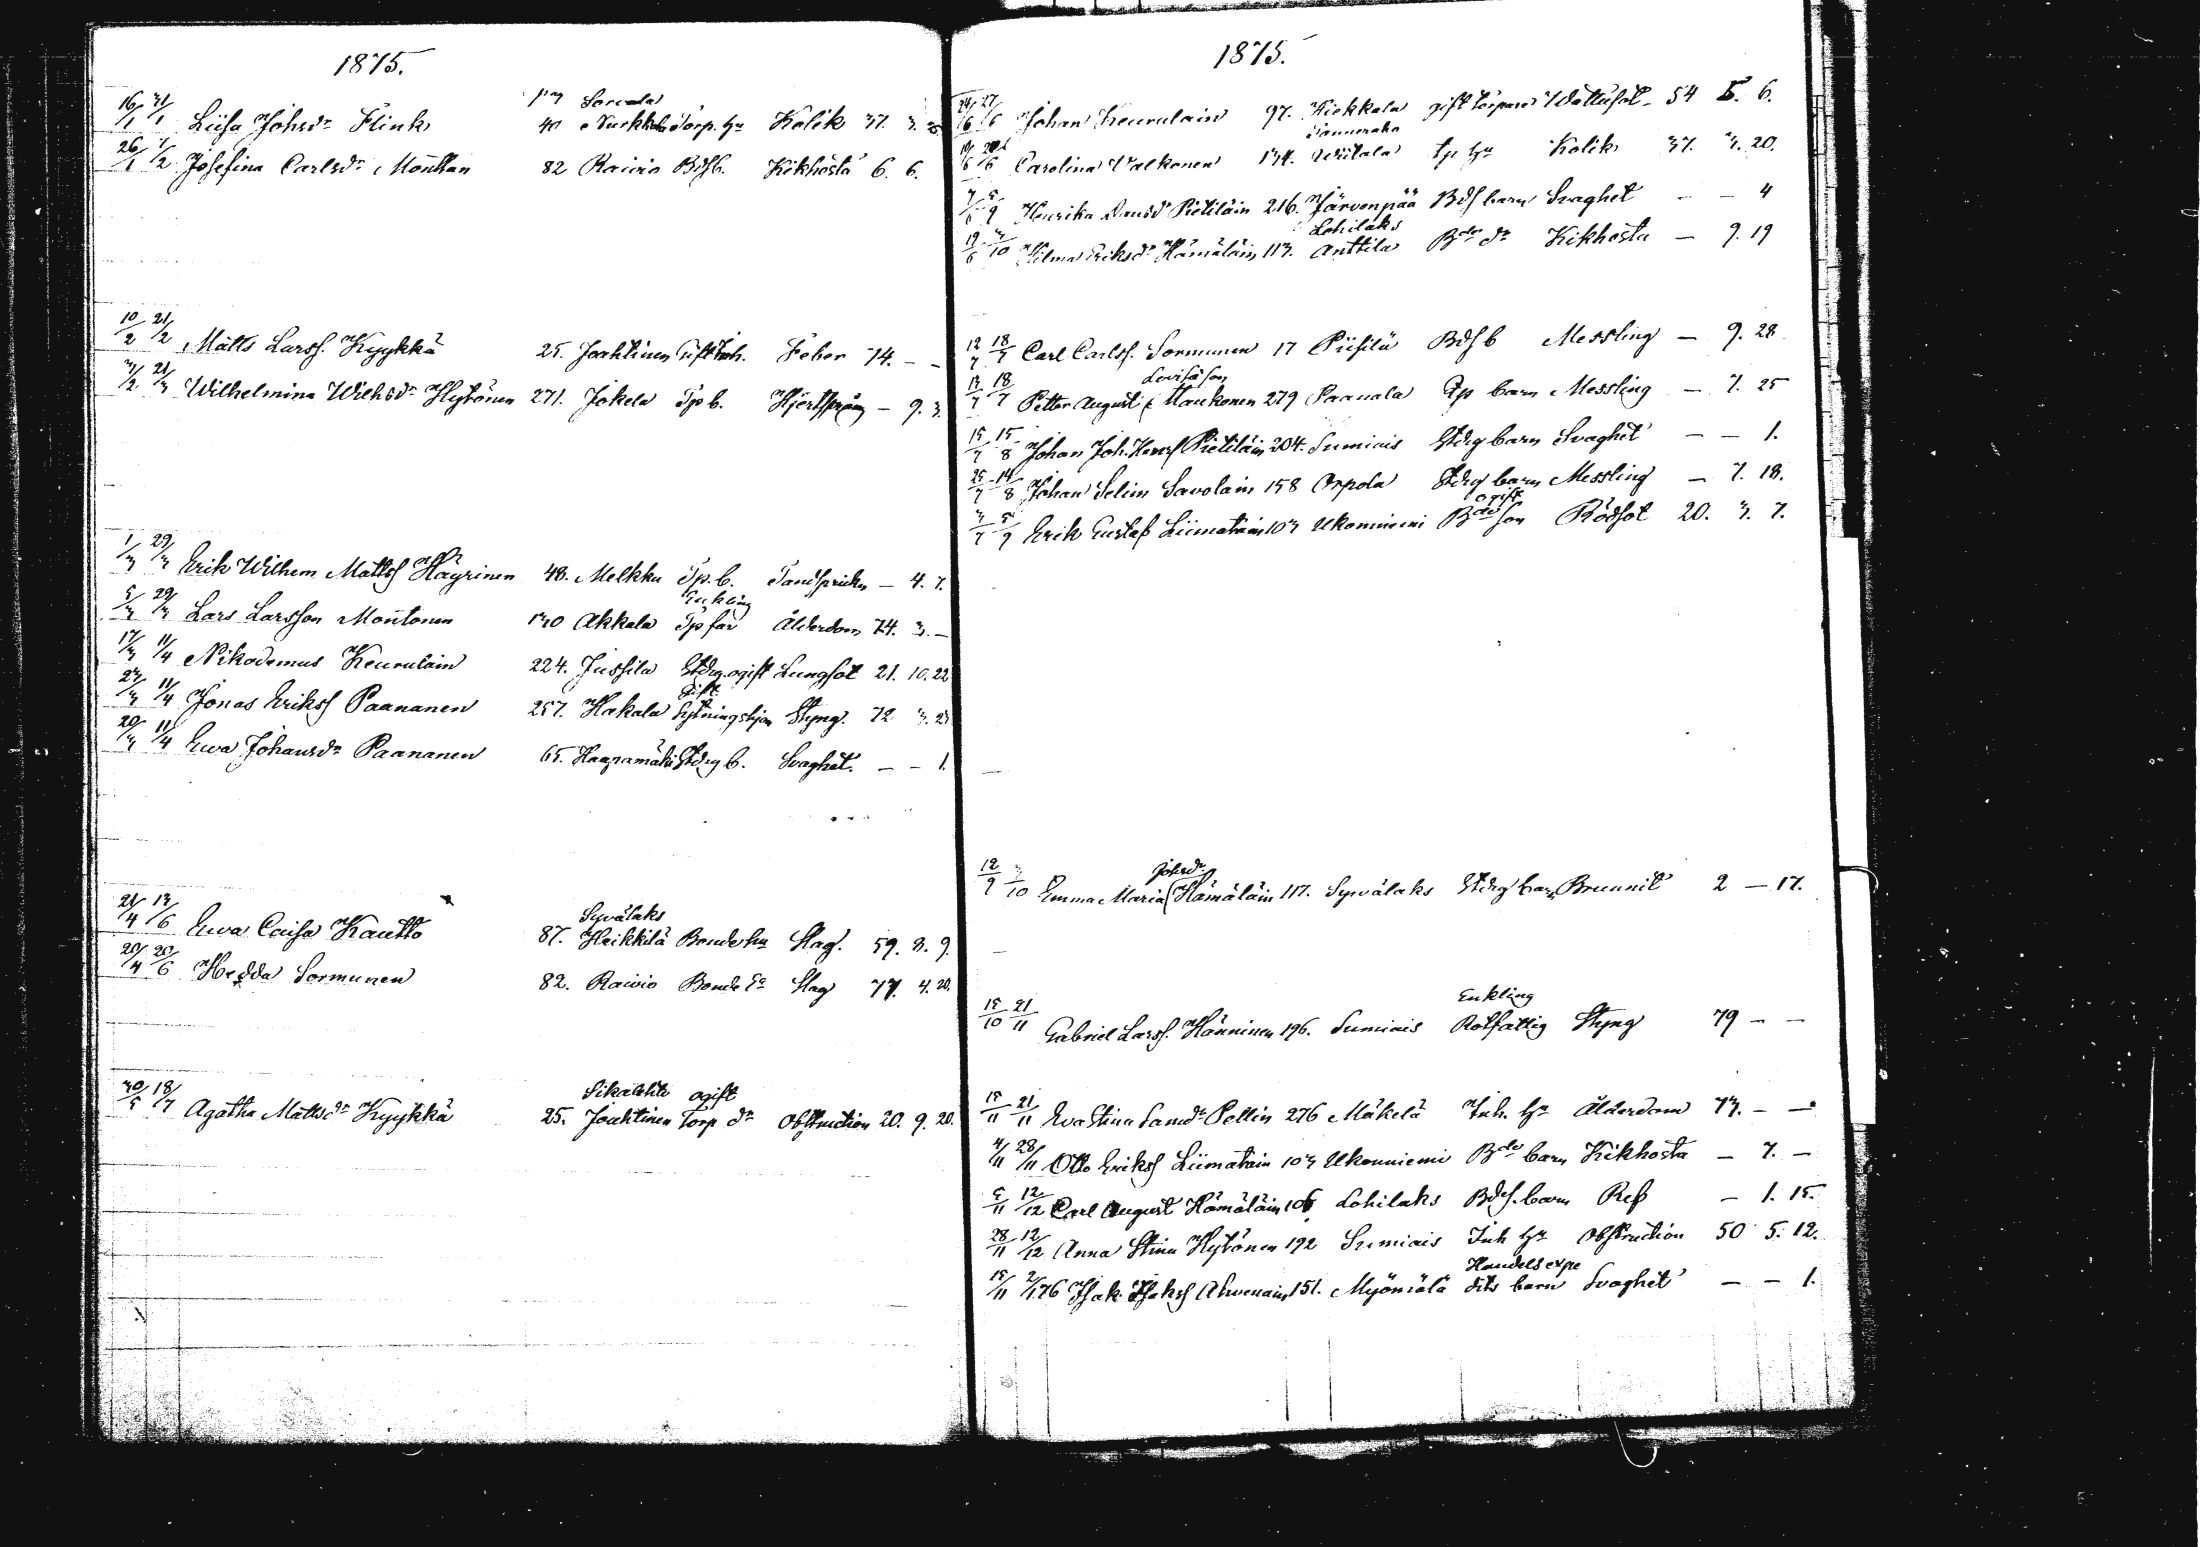 1875.
16/1 31/1 Liisa Johsdr Flink 40 Sorvala Torp. hu Kolik 37. 3.
26/1 7/2 Josefina Carlsdr Monthan 82 Raivio Bdsb. Kikhosta 6. 6.
10/2 21/2 Matts Larss. Kyykkä 25. Joahtinen Gift Inh. Feber 74. - -
3/2 21/3 Wilhelmina Wilhsdr Hytönen 271. Jokela Tp b. Hjertsprång - 9. 3.
1/3 29/3 Erik Wilhem Mattss Häyrinen 48. Melkku Tp. b. Tandsprickn - 4. 7.
Enkling
5/3 29/3 Lars Larsson Montonen 130 Akkala Tp far Ålderdom 74. 3. -
17/3 11/4 Nikodemus Keurulain 224. Jussila Stdrg. ogift Lungsot 21. 10. 22
Gift
23/3 11/4 Jonas Erikss Paananen 257. Hakala Sytningshjon Styng. 72 3. 23
20/3 11/4 Ewa Johansdr Paananen 65. Haapamäki Stdrg b. Svaghet. - - 1.
Syvälaks
21/4 13/6 Ewa Caisa Kautto 87. Heikkilä Bonde hu Slag. 59. 8. 9.
20/4 20/6 Hedda Sormunen 82. Raivio Bonde Ea Slag 77. 4. 20.
Sikalehti ogift
30/5 18/7 Agatha Mattsdr Kyykkä 25. Joahtinen Torp dr Obstruction 20. 9. 20.
1875.
24/6 27/6 Johan Keurulain 97. Kiekkala gift torpare Wattusot 54 5. 6.
Carolina Valkonen 134. Wiitala tp hu Kolik 37. 3. 20.
Henrika Dansdr Pietiläin 216. Järvenpää Bds barn Svaghet - - 4
Lohilaks
19/6 3/10 Hilma Eriksdr Hämäläin 113. Anttila Bde dr Kikhosta - 9. 19
12/7 18/7 Carl Carlss. Sormunen 17 Piisilä Bds b Messling - 9. 28
Lovisa son
13/7 18/7 Petter August Maukonen 279 Paanala Tp barn Messling - 7. 25
15/7 15/8 Johan Joh. Henrss Pietiläin 204. Sumiais Stdrg barn Svaghet - - 1.
25/7 14/8 Johan Selim Savolain 158 Orpola Stdrg barn Messling - 7. 18.
ogift
3/7 5/9 Erik Gustafs Liimatain 103 Ukonniemi Bde son Rödsot 20. 3. 7.
Johsdr
12/9 3/10 Emma Maria Hämäläin 117. Syvälaks Stdrg barn Brunnit 2 - 17.
Enkling
15/10 21/11 Gabriel Larss. Hänninen 196. Sumiais Rotfattig Styng 79 - -
15/11 21/11 Eva Stina Samdr Pellin 276 Mäkelä Inh. hu Ålderdom 73. - -
4/11 28/11 Otto Erikss Liimatain 103 Ukonniemi Bde barn Kikhosta - 7. -
5/11 12/12 Carl August Hämäläin 106 Lohilaks Bds. barn Ref - 1. 15.
28/11 12/12 Anna Stina Hytönen 192 Sumiais Inh hu Obstruction 50 5. 12.
Handels expe
15/11 2/1 76 Isak Isakss Ahvenain 151. Myöniälä dits barn Svaghet - - 1.